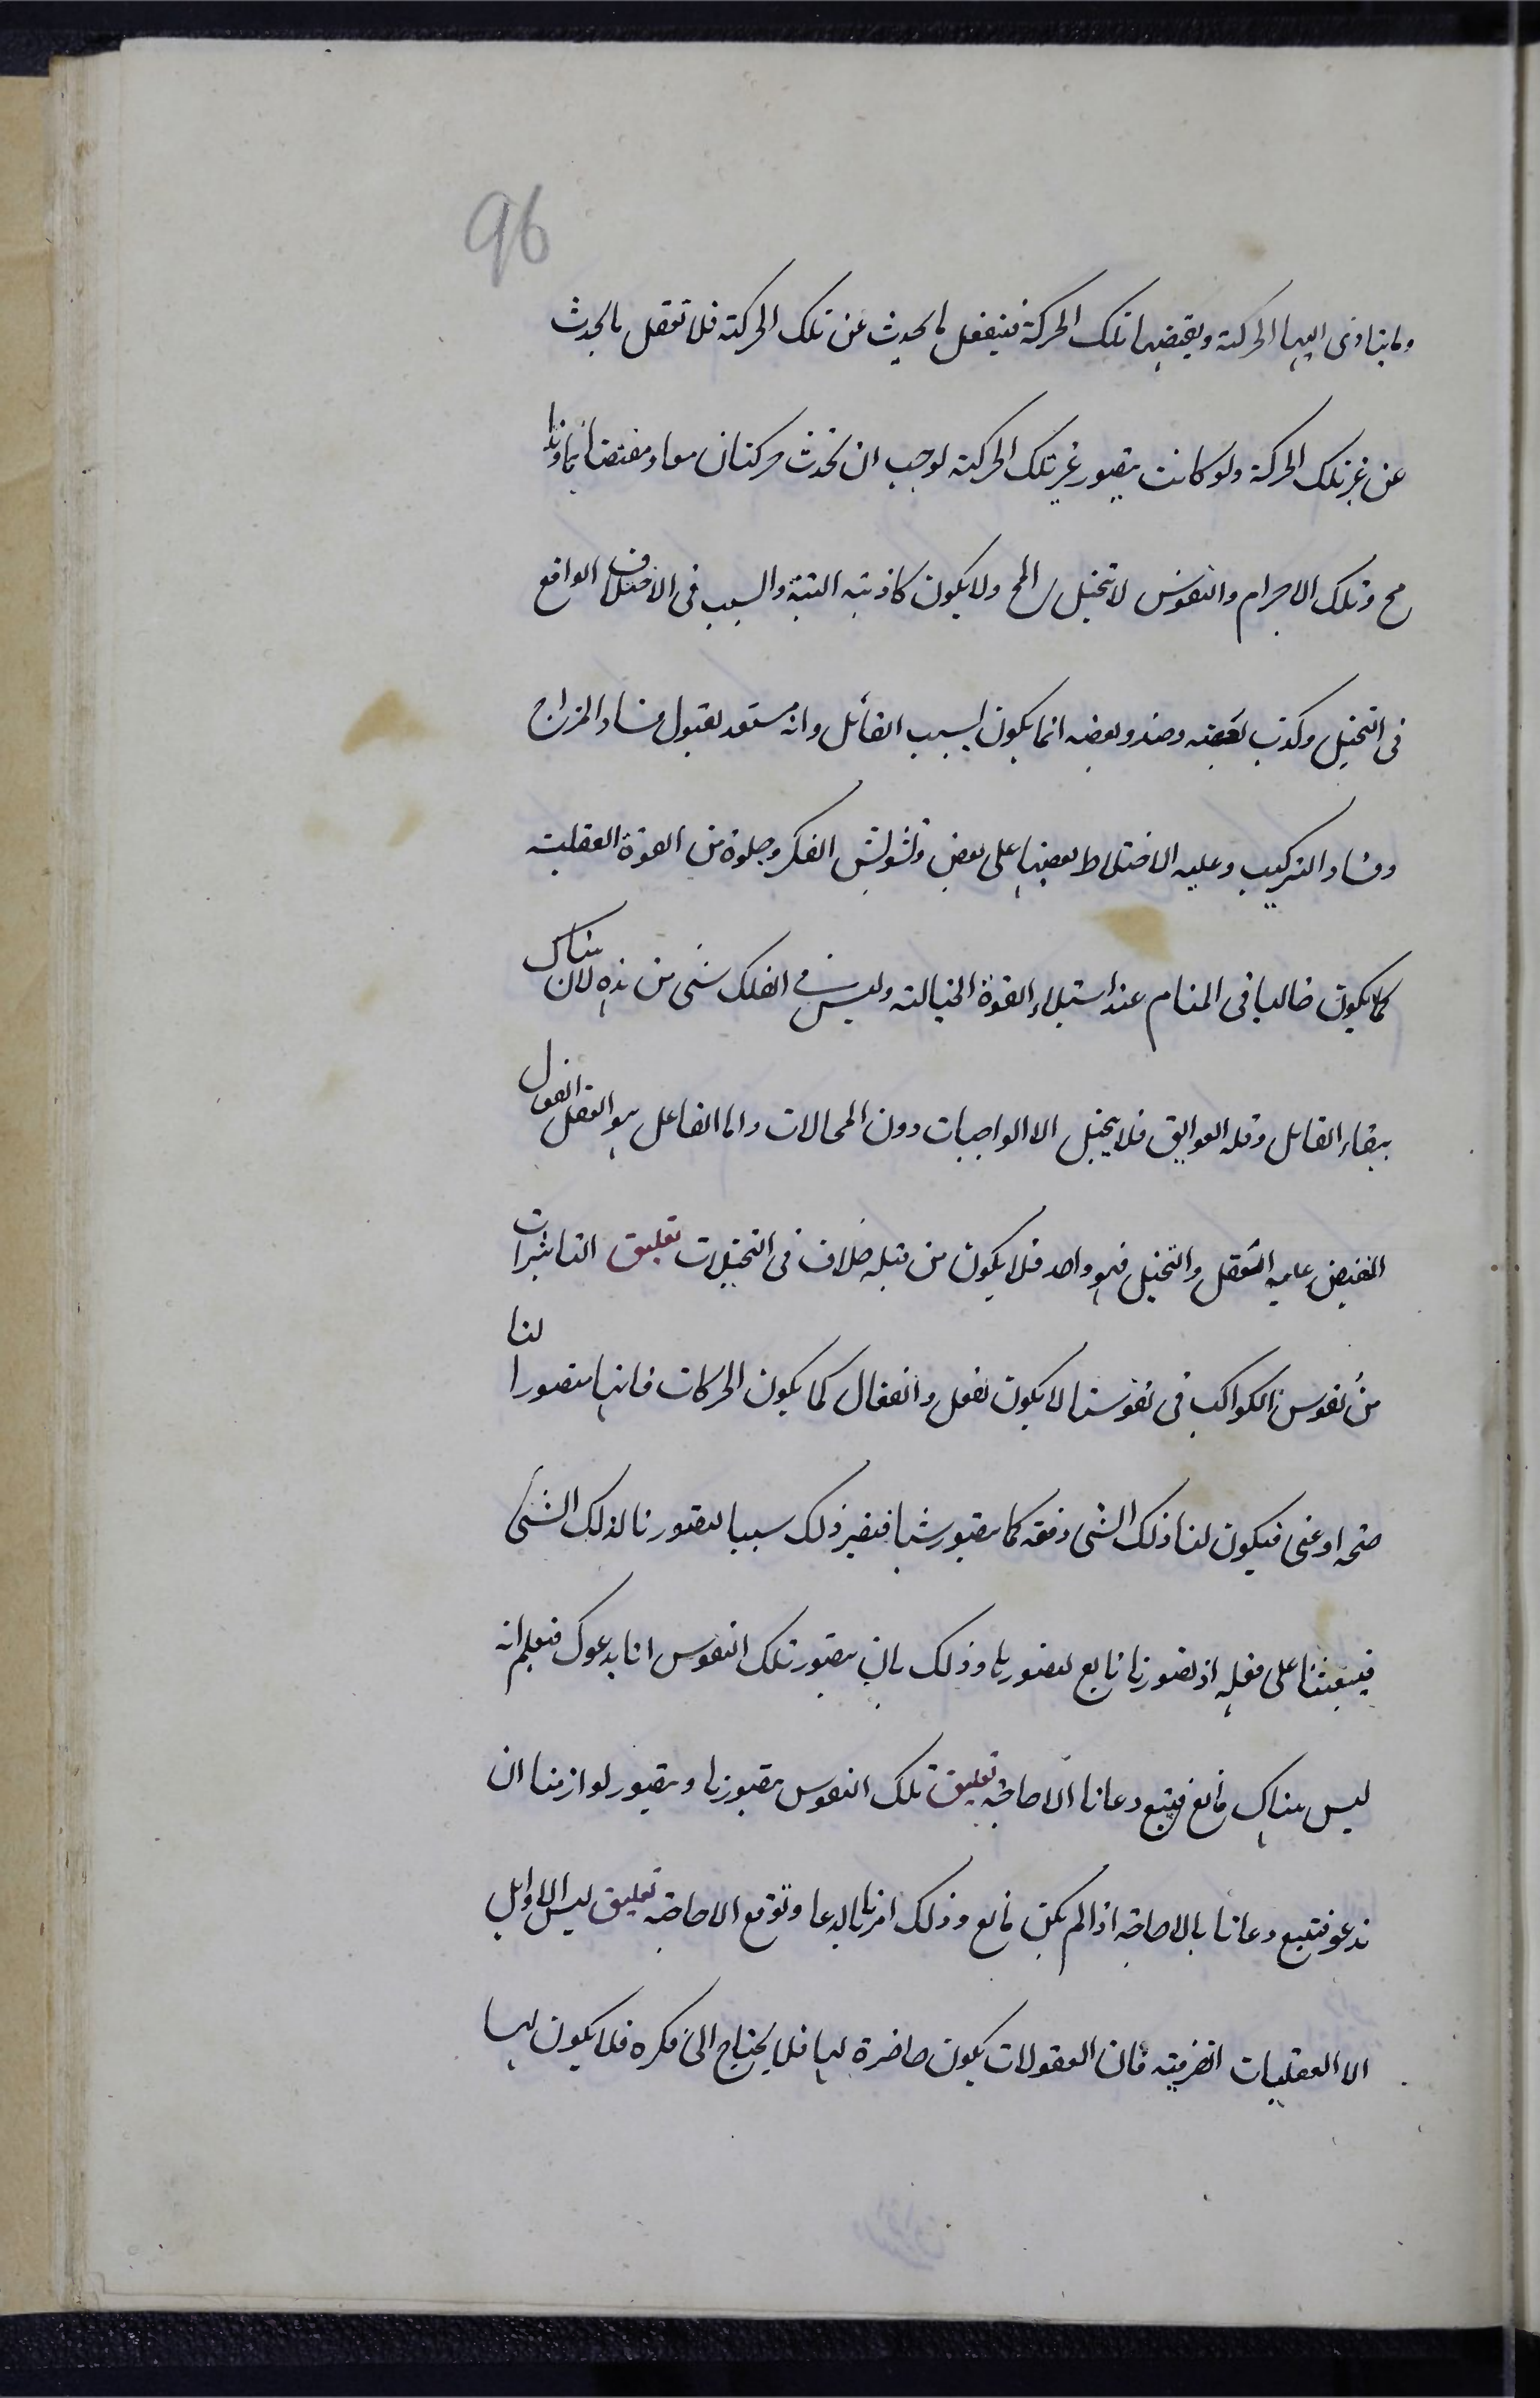 96
وما يتادى اليها الحركة ويقتضيها تلك الحركة فينفعل ما يحدث عن تلك الحركة فلا تعقل ما يحدث
عن غير تلك الحركة ولو كانت يتصور غير تلك الحركة لوجب ان تحدث حركتان معا ومقتضاهما وذا
مح وتلك الاجرام والنفوس لا تتخيل المح ولا يكون كاذبته البتة والسبب فى الاختلاف الواقع
فى التخيل وكذب بعضه وصدق بعضه انما يكون بسبب القائل وانه مستعد لقبول فساد المزاج
وفساد التركيب وعليه الاختلاط بعضها على بعض وتشويش الفكر وخلوه من القوة العقلية
كما يكون غالبا فى المنام عند استيلاء القوة الخيالية وليس فى الفلك شى من هذه لان هناك
ببقاء القابل وقلة العوايق فلا يتخيل الا الواجبات دون المحالات واما الفاعل هو العقل الفعال
المفيض عليه التعقل والتخيل فهو واحد فلا يكون من قبله خلاف فى التخيلات تعليق التاثيرات
من نفوس الكواكب فى نفوسنا لا يكون بفعل وانفعال كما يكون الحركات فانها متصورا لنا
صحة او غنى فيكون لنا ذلك الشى دفعة كما يتصور شيا فيصير ذلك سببا لتصورنا لذلك الشئ
فيبعثنا على فعله اذ تصورنا تابع لتصورها وذلك بان يتصور تلك النفوس انا يدعوك فيعلم انه
ليس هناك مانع فيتبع دعانا الاجابة تعليق تلك النفوس يتصورنا ويتصور لوازمنا ان
ندعو فتتبع دعانا بالاجابة اذا لم يكن مانع وذلك امرنا بالدعا وتوقع الاجابة تعليق ليس للاوايل
الا العقليات الصرفية فان المعقولات يكون حاضرة لها فلا يحتاج الى فكره فلا يكون لها